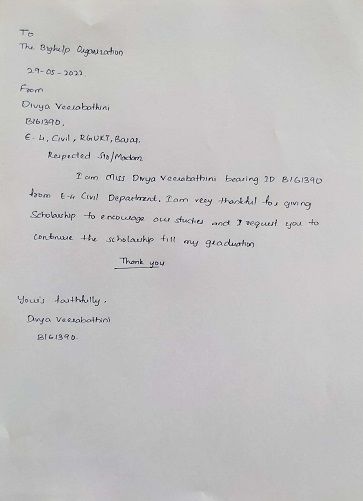 To
The Bighelp Organization
29-05-2022
From
Divya Veerabathini
B161390,
E-4, Civil, RGUKT, Basar.
Respected Sir/Madam
I am Miss Divya Veerabathini bearing ID B161390
from E-4 Civil Department. I am very thankful for giving
Scholarship to encourage our studies and I request you to
continue the scholarship till my graduation
Thank you
Your's faithfully,
Divya Veerabathini
B161390.